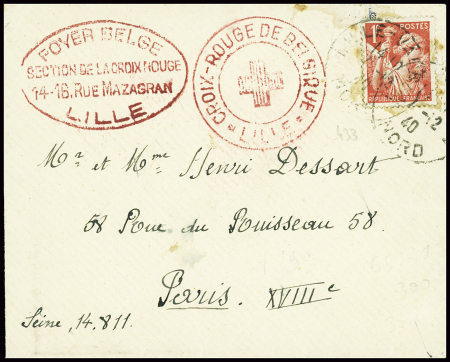 FOYER BELGE
SECTION DE LA CROIX ROUGE
14-16, RUE MAZAGRAN
LILLE
CROIX-ROUGE DE BELGIQUE
* LILLE *
POSTES
REPUBLIQUE FRANCAISE
LILLE
-12
40
NORD
433
Mr et Mme Henri Dessart
58 Rue du Ruisseau 58.
Paris. XVIIIe
Seine, 14.811.